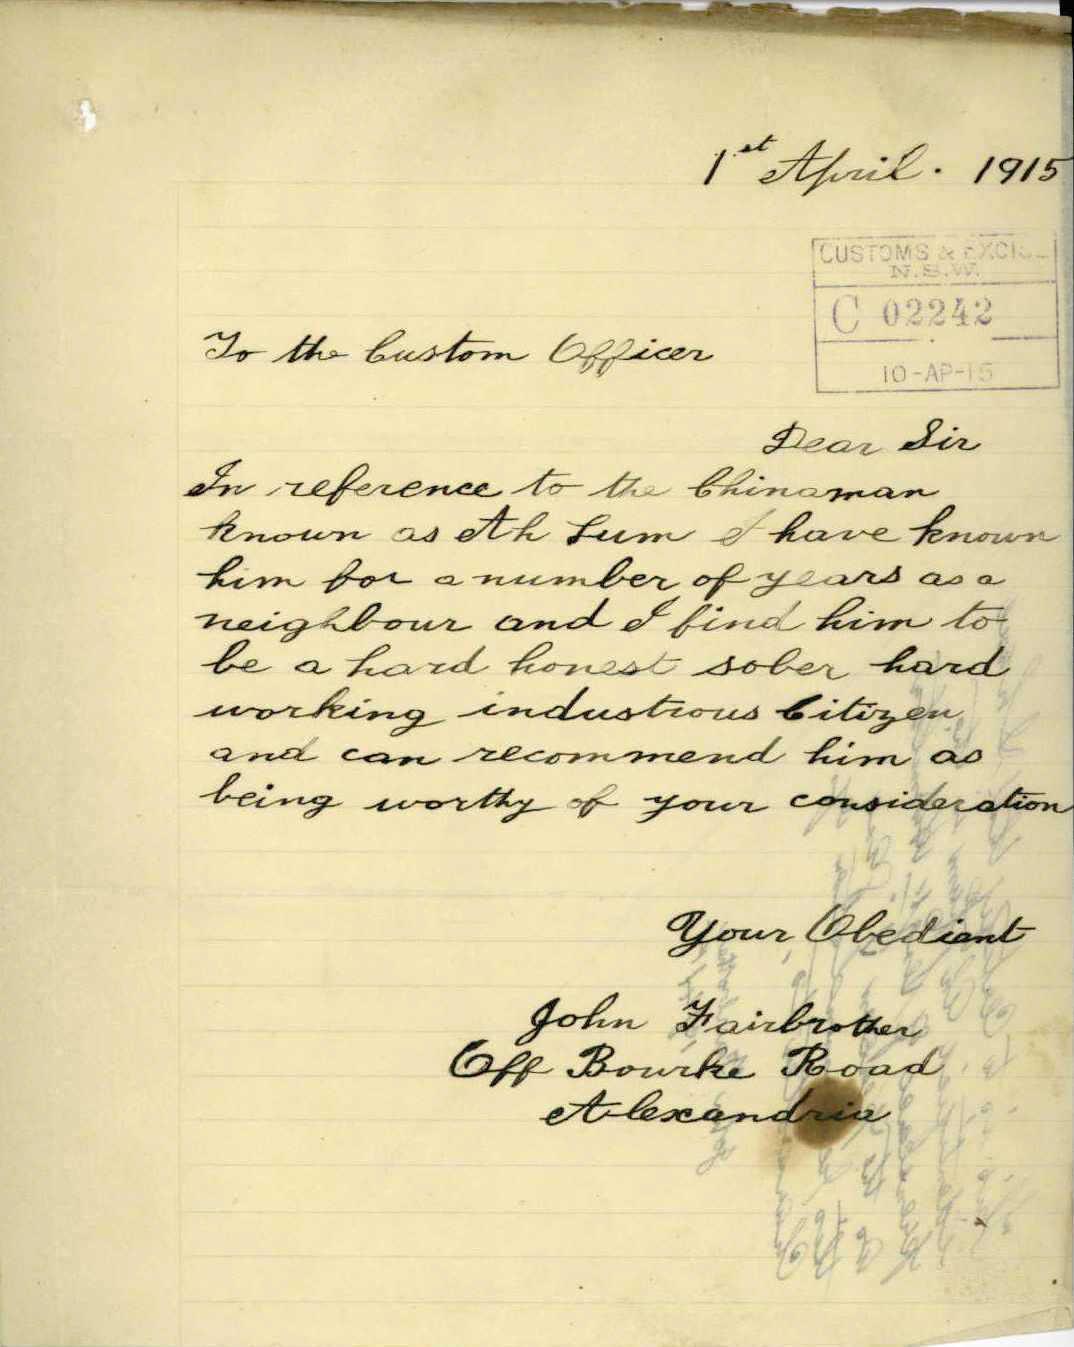 1st April. 1915
CUSTOMS & EXCISE
N.S.W.
C 02242
10-AP-15
To the Custom Officer
Dear Sir
In reference to the Chinaman
known as Ah Lum I have known
him for a number of years as a
neighbour and I find him to
be a hard honest sober hard
working industrous Citizen
and can recommend him as
being worthy of your consideration
Your Obediant
John Fairbrother
Off Bourke Road
Alexandria